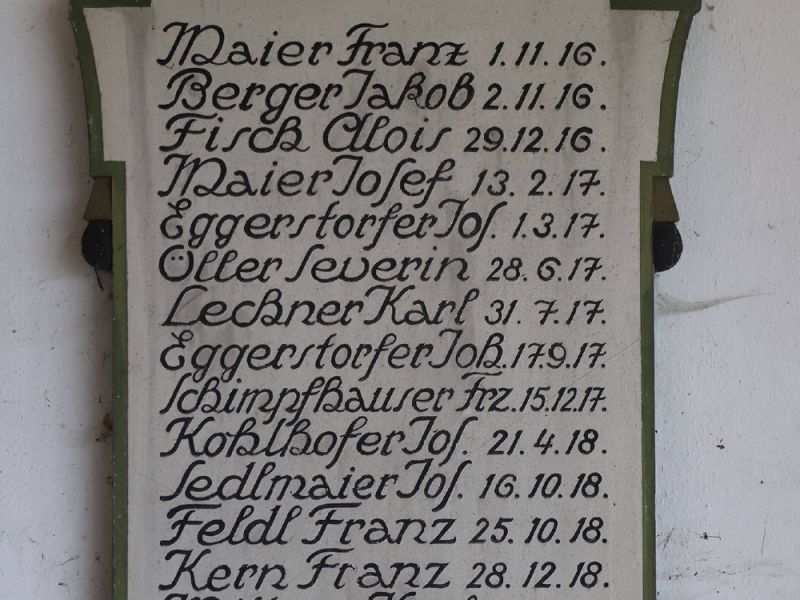 Maier Franz 1.11.16.
Berger Jakob 2.11.16.
Fisch Alois 29.12.16.
Maier Josef 13.2.17.
Eggerstorfer Jos. 1.3.17.
Öller Severin 28.6.17.
Lechner Karl 31.7.17.
Eggerstorfer Joh. 17.9.17.
Schimpfhauser Frz. 15.12.17.
Kohlhofer Jos. 21.4.18.
Sedlmaier Jos. 16.10.18.
Feldl Franz 25.10.18.
Kern Franz 28.12.18.